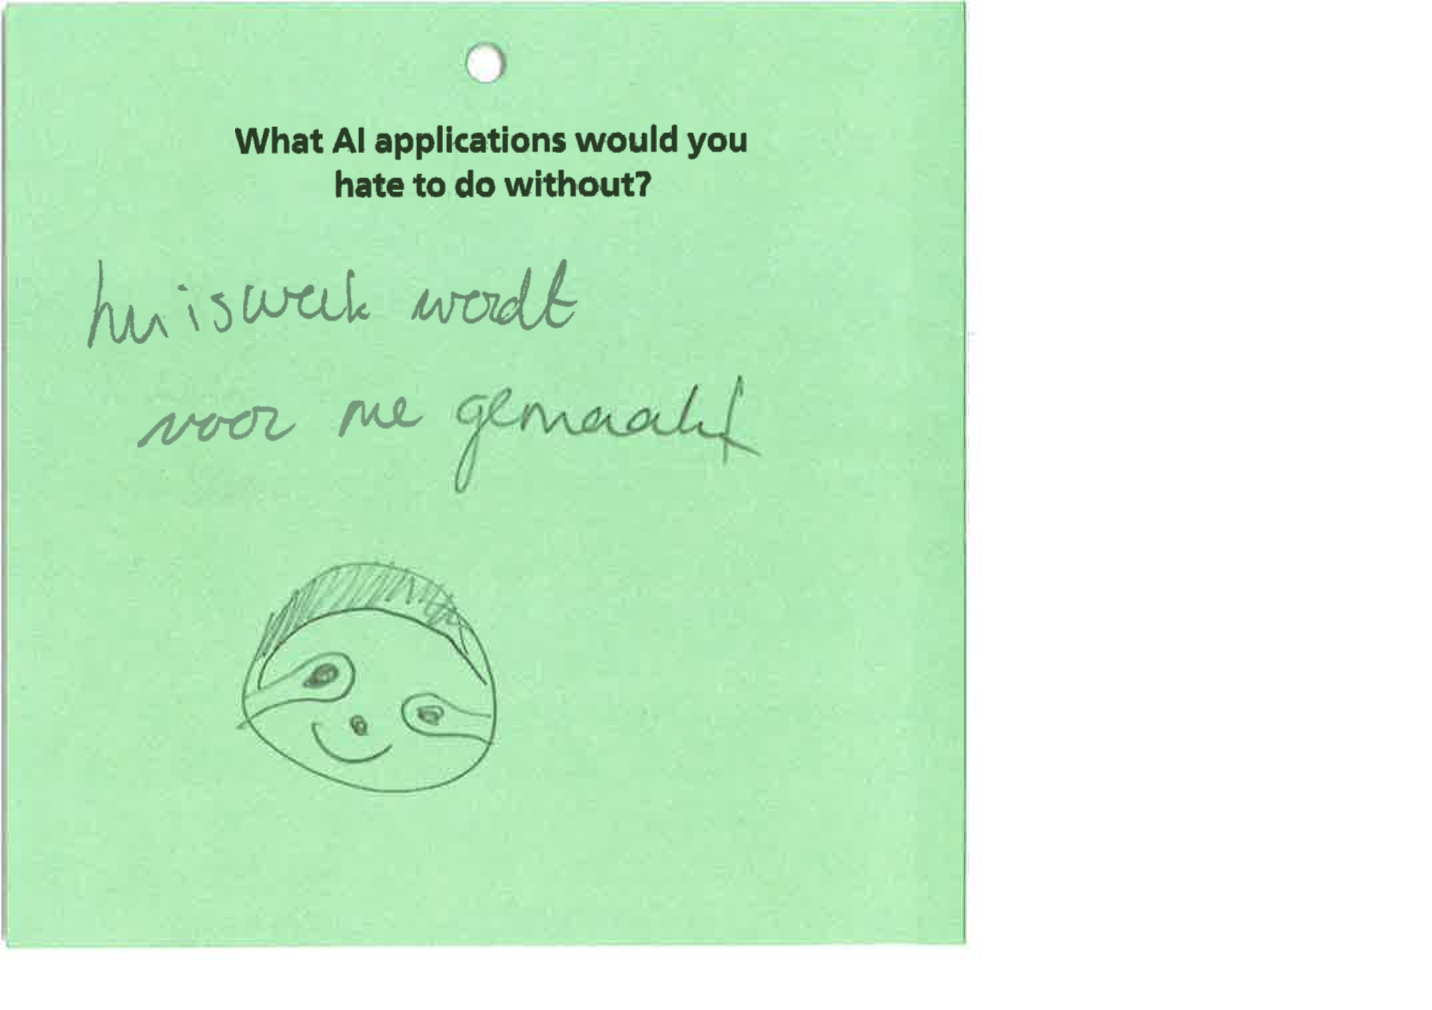 What AI applications would you
hate to do without?
huiswerk wordt
voor me gemaakt